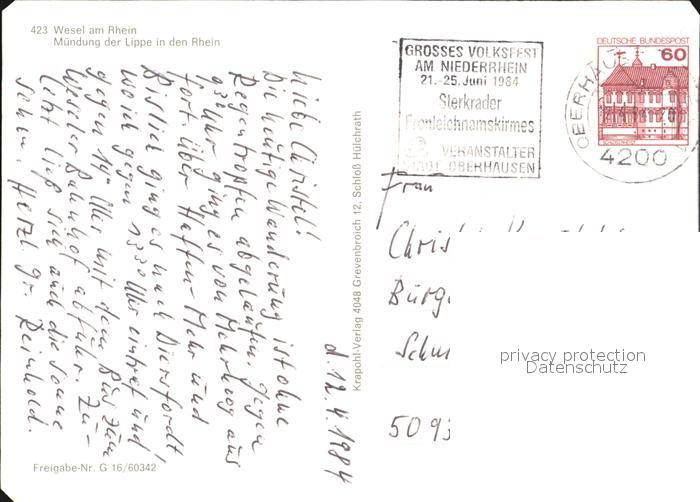 423 Wesel am Rhein
Mündung der Lippe in den Rhein
GROSSES VOLKSFEST
AM NIEDERRHEIN
21.-25. Juni 1984
Sterkrader
Fronleichnamskirmes
VERANSTALTER
STADT OBERHAUSEN
DEUTSCHE BUNDESPOST
60
OBERHAUS
4200
d. 12.4.1984
Liebe Christel!
Die heutige Wanderung ist ohne
Regentropfen abgelaufen. Gegen
9³⁰ Uhr ging es von Mehrhoog aus
fort über Haffen-Mehr und
Bislich ging es nach Diersfordt,
wo ich gegen 13³⁰ Uhr eintraf und
gegen 14 Uhr mit dem Bus zum
Weseler Bahnhof abfuhr. Zu-
letzt ließ sich auch die Sonne
sehn. Herzl. Gr. Reinhold.
Krapohl-Verlag 4048 Grevenbroich 12, Schloß Hülchrath
Frau
Chris
Bürg
Schu
509
privacy protection
Datenschutz
Freigabe-Nr. G 16/60342